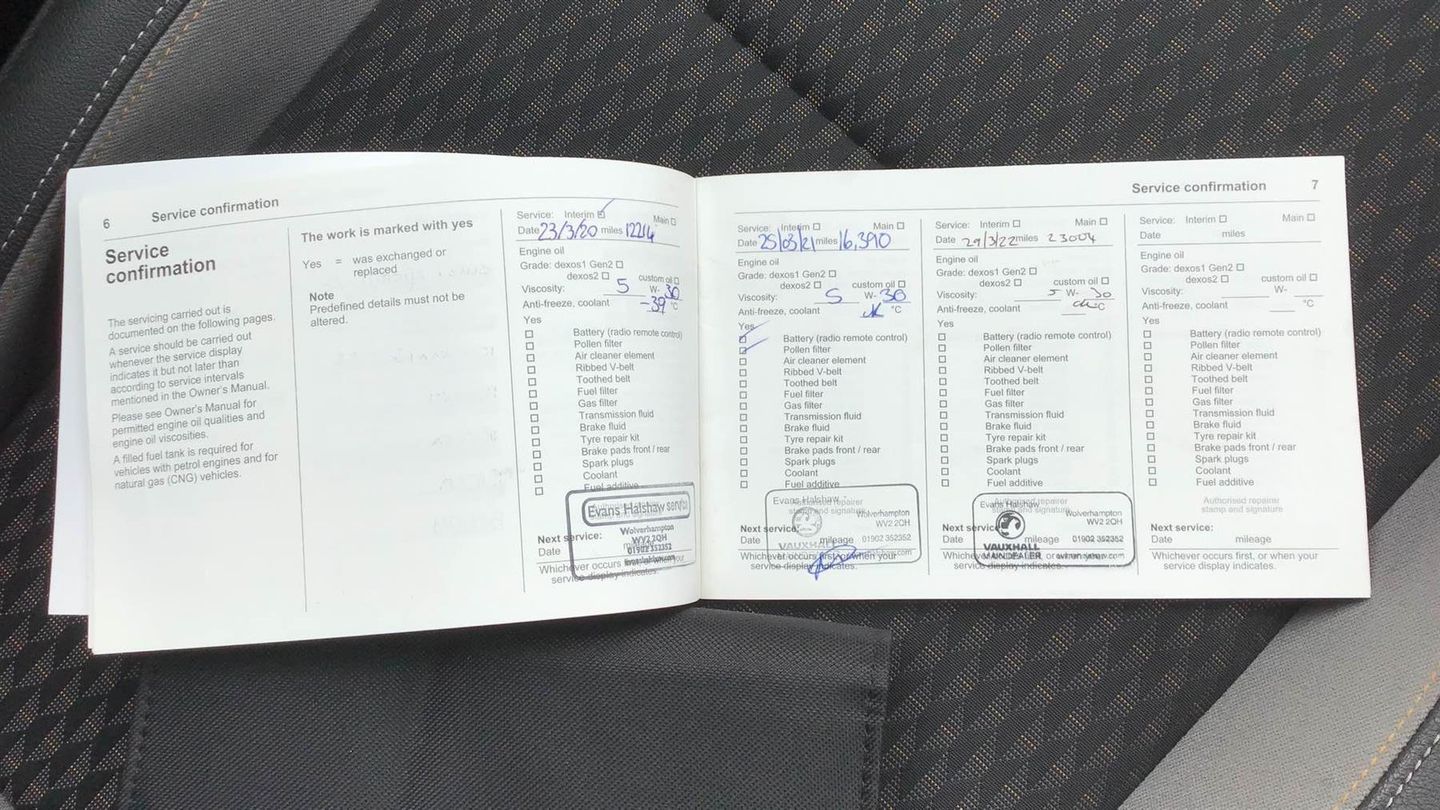 6 Service confirmation
Service
confirmation
The servicing carried out is
documented on the following pages.
A service should be carried out
whenever the service display
indicates it but not later than
according to service intervals
mentioned in the Owner's Manual.
Please see Owner's Manual for
permitted engine oil qualities and
engine oil viscosities.
A filled fuel tank is required for
vehicles with petrol engines and for
natural gas (CNG) vehicles.
The work is marked with yes
Yes = was exchanged or
replaced
Note
Predefined details must not be
altered.
Service: Interim Main
Date 23/3/20 miles 12214
Engine oil
Grade: dexos1 Gen2
dexos2 custom oil
Viscosity: 5 W- 30
Anti-freeze, coolant -39 °C
Yes
Battery (radio remote control)
Pollen filter
Air cleaner element
Ribbed V-belt
Toothed belt
Fuel filter
Gas filter
Transmission fluid
Brake fluid
Tyre repair kit
Brake pads front / rear
Spark plugs
Coolant
Fuel additive
Evans Halshaw
Wolverhampton
Next service: WV2 2QH
Date 01902 352352
Whichever occurs first, or when your
service display indicates.
Service confirmation 7
Service: Interim Main
Date 25/03/21 miles 16,390
Engine oil
Grade: dexos1 Gen2
dexos2 custom oil
Viscosity: 5 W- 30
Anti-freeze, coolant °C
Yes
Battery (radio remote control)
Pollen filter
Air cleaner element
Ribbed V-belt
Toothed belt
Fuel filter
Gas filter
Transmission fluid
Brake fluid
Tyre repair kit
Brake pads front / rear
Spark plugs
Coolant
Fuel additive
Evans Halshaw Authorised repairer
stamp and signature Wolverhampton
WV2 2QH
Next service:
Date mileage 01902 352352
Whichever occurs first, or when your
service display indicates.
Service: Interim Main
Date 29/3/22 miles 23004
Engine oil
Grade: dexos1 Gen2
dexos2 custom oil
Viscosity: 5 W- 30
Anti-freeze, coolant °C
Yes
Battery (radio remote control)
Pollen filter
Air cleaner element
Ribbed V-belt
Toothed belt
Fuel filter
Gas filter
Transmission fluid
Brake fluid
Tyre repair kit
Brake pads front / rear
Spark plugs
Coolant
Fuel additive
Authorised repairer
Evans Halshaw stamp and signature Wolverhampton
WV2 2QH
Next service:
Date mileage 01902 352352
VAUXHALL
MAIN DEALER
Whichever occurs first, or when your
service display indicates.
Service: Interim Main
Date miles
Engine oil
Grade: dexos1 Gen2
dexos2 custom oil
Viscosity: W-
Anti-freeze, coolant °C
Yes
Battery (radio remote control)
Pollen filter
Air cleaner element
Ribbed V-belt
Toothed belt
Fuel filter
Gas filter
Transmission fluid
Brake fluid
Tyre repair kit
Brake pads front / rear
Spark plugs
Coolant
Fuel additive
Authorised repairer
stamp and signature
Next service:
Date mileage
Whichever occurs first, or when your
service display indicates.